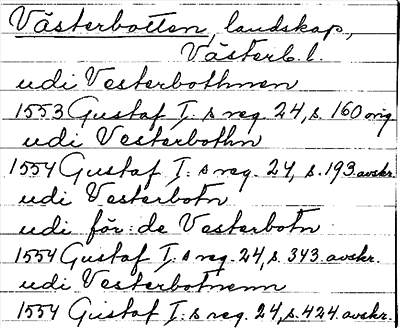 Västerbotten, landskap,
Västerb. l.
udi Vesterbothnen
1553 Gustaf I:s reg. 24, s. 160 orig
udi Vesterbothn
1554 Gustaf I:s reg. 24, s. 193 avskr.
udi Vesterbotn
udi för:de Vesterbotn
1554 Gustaf I:s reg. 24, s. 343. avskr.
udi Vesterbotnenn
1554 Gustaf I:s reg. 24, s. 424. avskr.